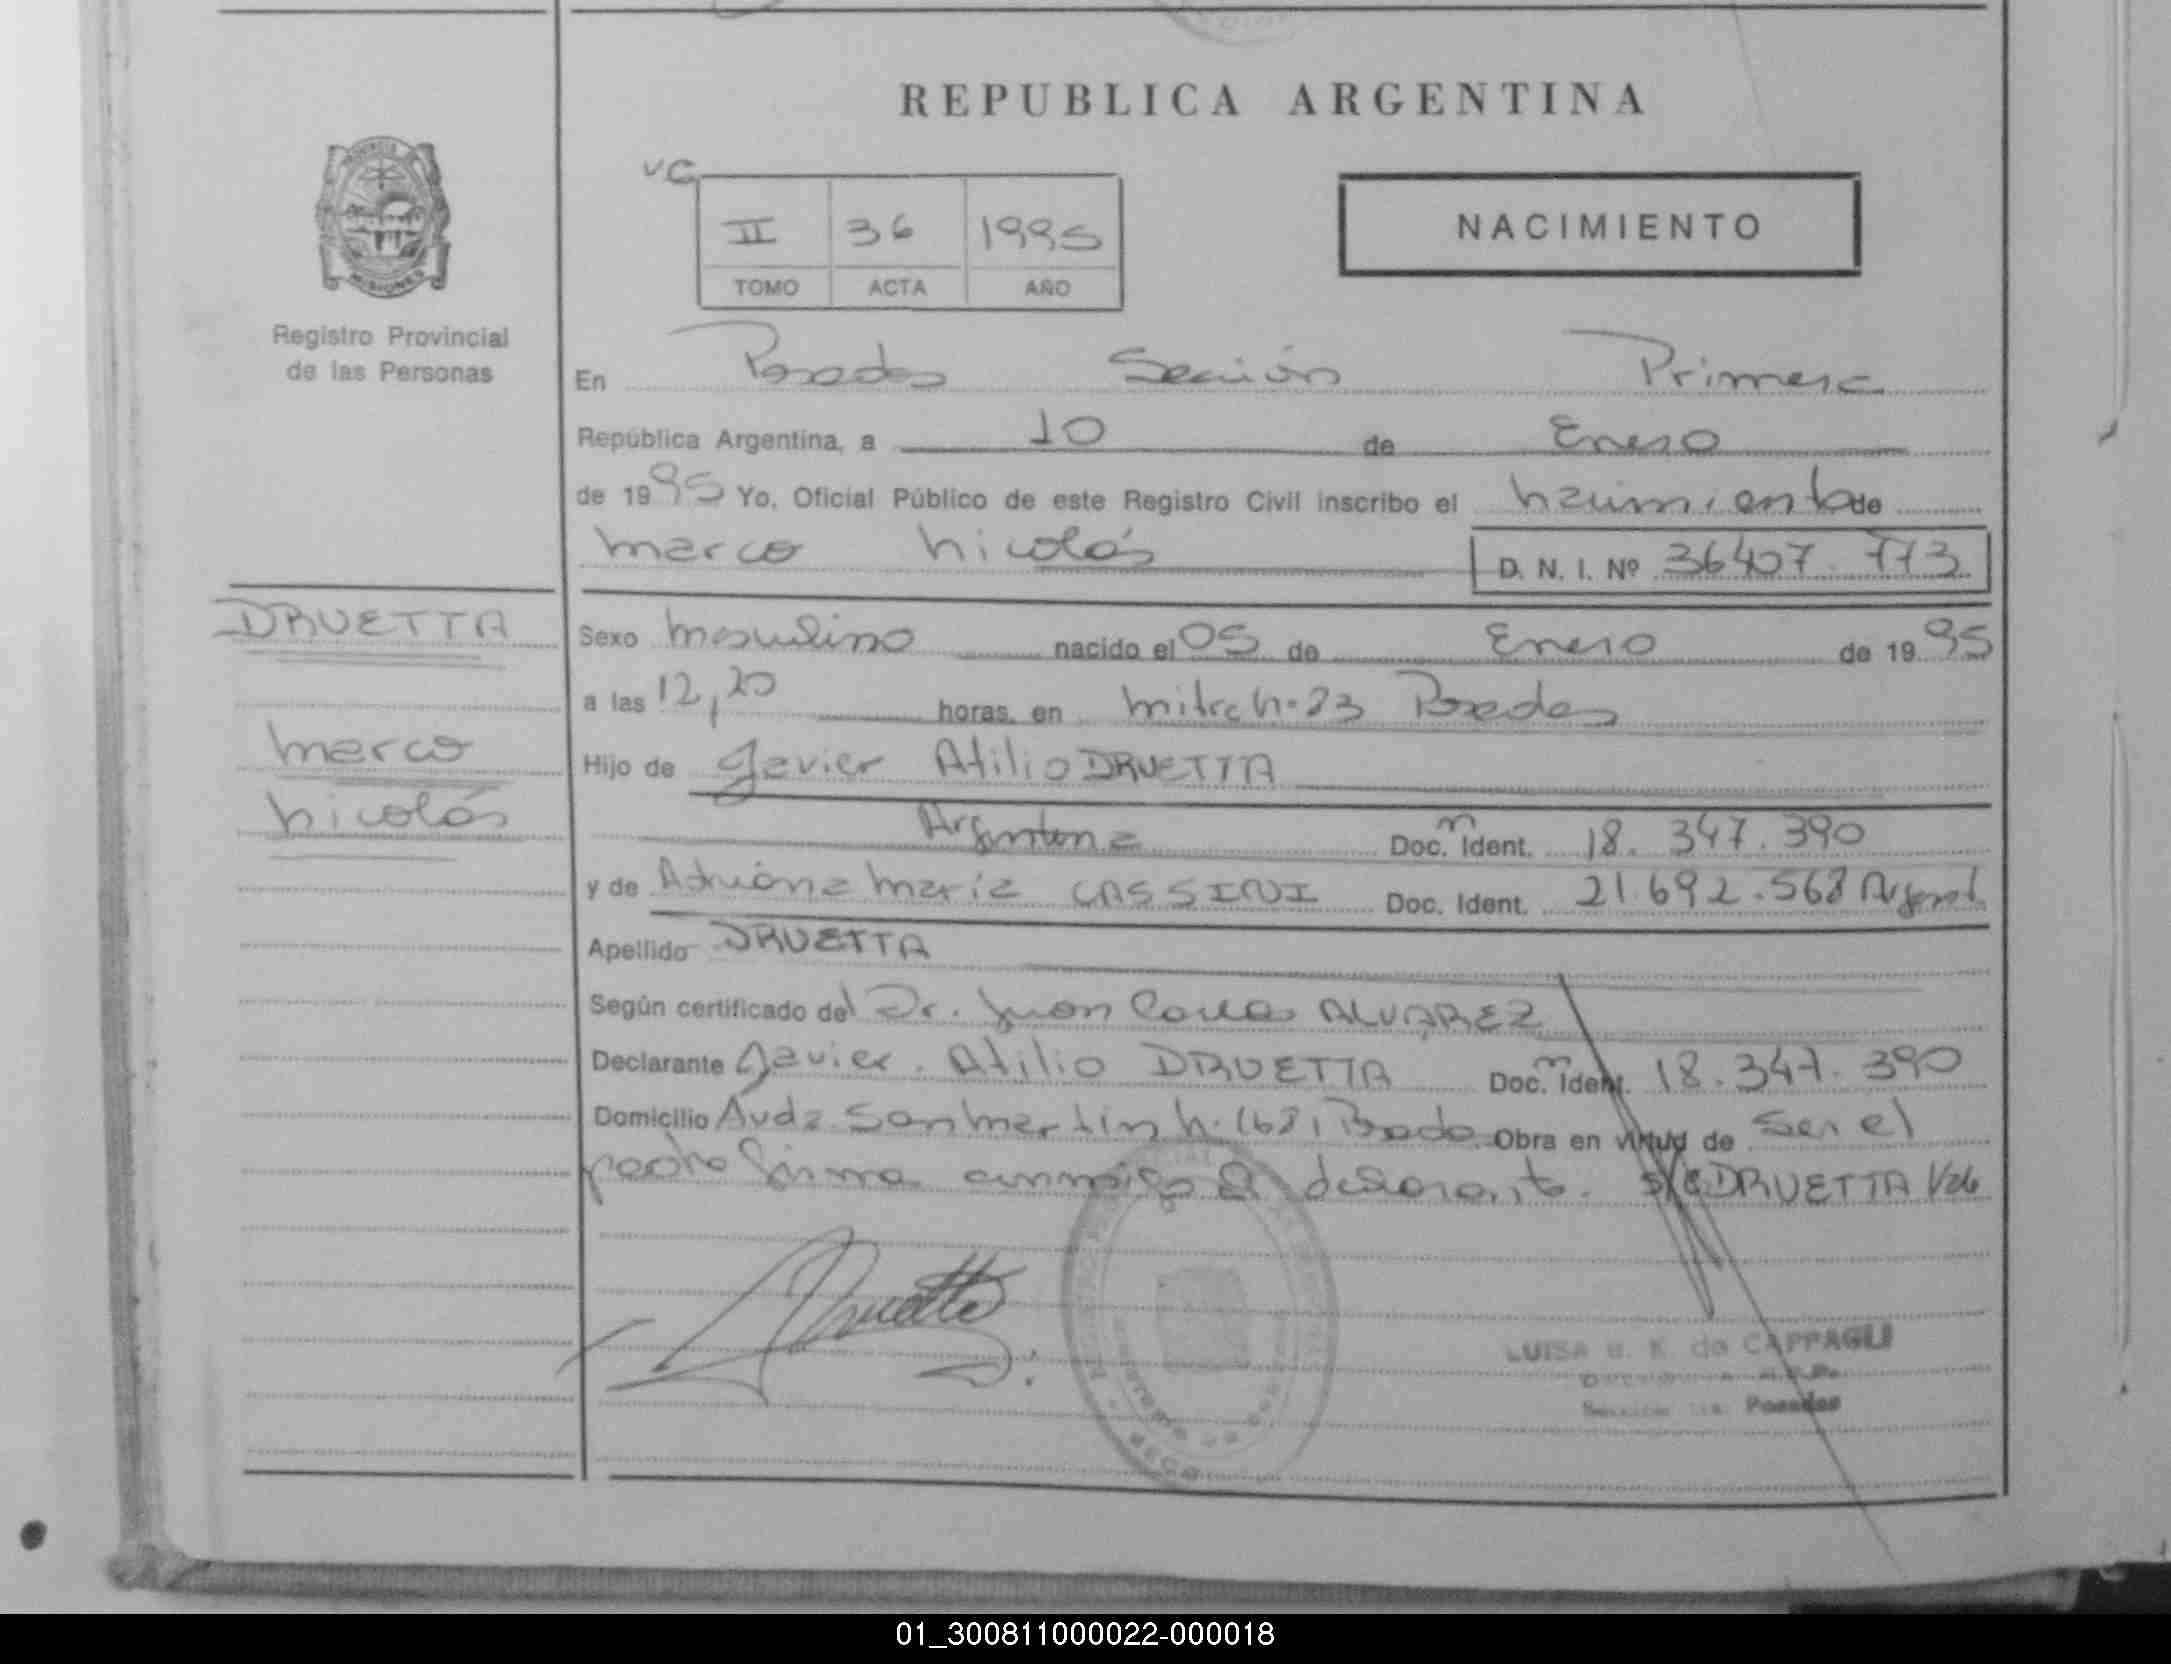 REPUBLICA ARGENTINA
PROVINCIA
MISIONES
Registro Provincial
de las Personas
VC
II 36 1995
TOMO ACTA AÑO
NACIMIENTO
En Posadas Sección Primera
República Argentina, a 10 de Enero
de 1995 Yo, Oficial Público de este Registro Civil inscribo el nacimiento de
Marco Nicolás D. N. I. Nº 36407.773
DRUETTA
Marco
Nicolás
Sexo Masculino nacido el 05 de Enero de 1995
a las 12,20 horas, en Mitre N- 23 Posadas
Hijo de Javier Atilio DRUETTA
Argentina Doc. m Ident. 18.347.390
y de Adriana Maria CASSINI Doc. Ident. 21.692.568 Argent.
Apellido DRUETTA
Según certificado del Dr. Juan Carlos ALVAREZ
Declarante Javier Atilio DRUETTA Doc. m Ident. 18.347.390
Domicilio Avda. San Martin N. 1681 Obra en virtud de Ser el
padre firma conmigo el declarante. DRUETTA Vale
Druetta
LUISA de CAPPAGLI
Sección 1ra. Posadas
01_300811000022-000018